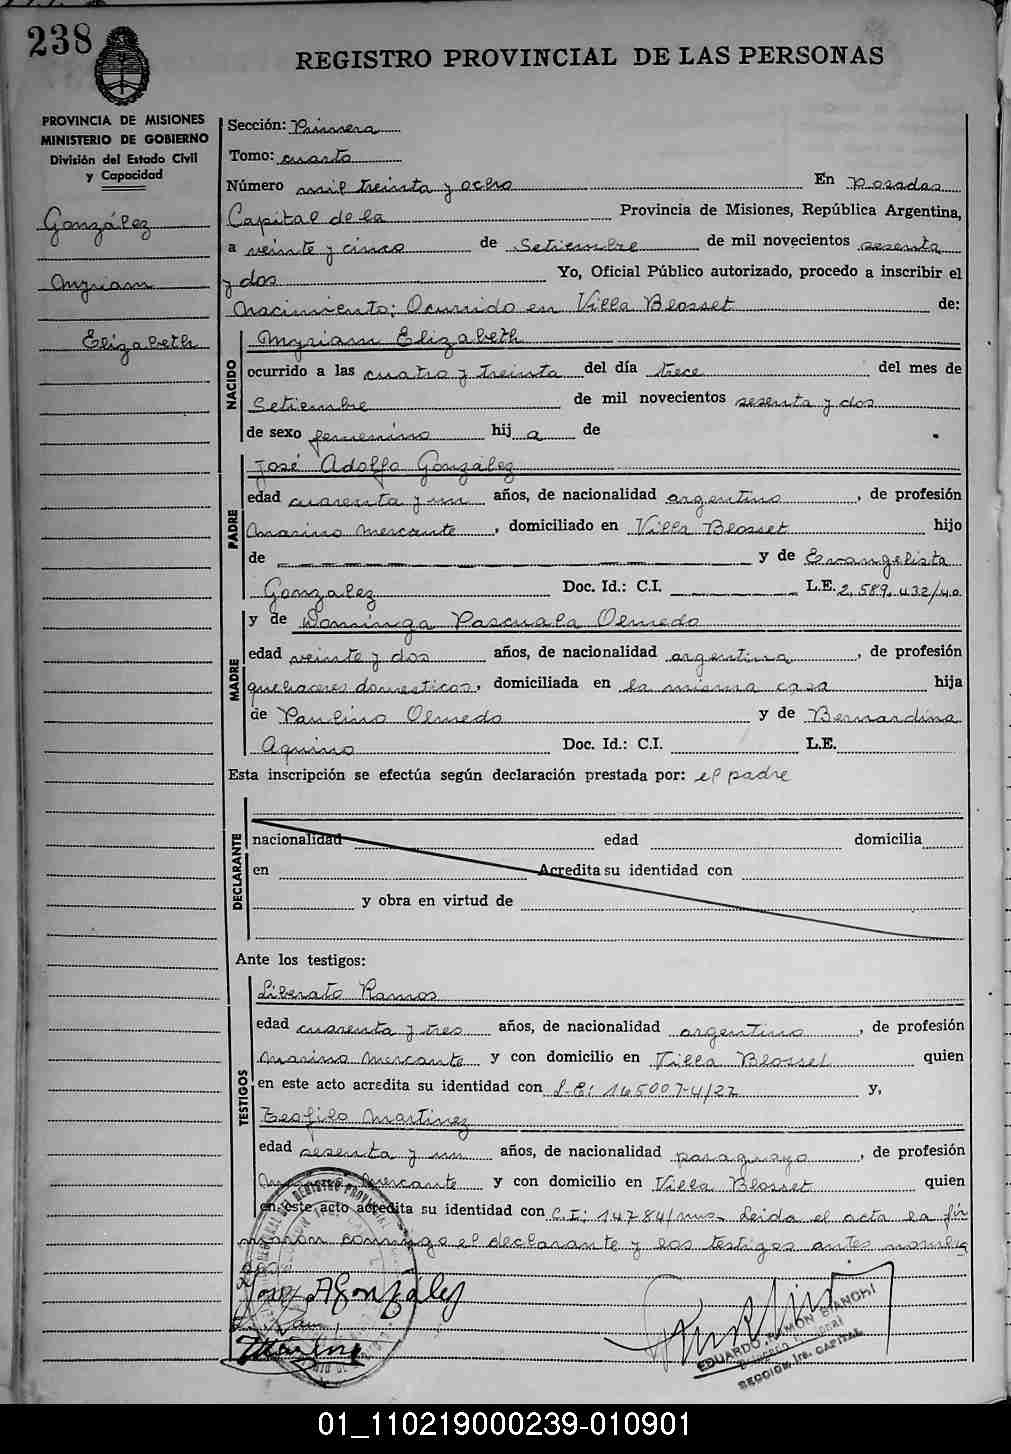 238
REGISTRO PROVINCIAL DE LAS PERSONAS
PROVINCIA DE MISIONES
MINISTERIO DE GOBIERNO
División del Estado Civil
y Capacidad
González
Myriam
Elizabeth
Sección: Primera
Tomo: cuarto
Número mil treinta y ocho En Posadas
Capital de la Provincia de Misiones, República Argentina,
a veinte y cinco de Setiembre de mil novecientos sesenta
y dos Yo, Oficial Público autorizado, procedo a inscribir el
Nacimiento: Ocurrido en Villa Blosset de:
NACIDO
Myriam Elizabeth
ocurrido a las cuatro y treinta del día trece del mes de
Setiembre de mil novecientos sesenta y dos
de sexo femenino hij a de
PADRE
José Adolfo González
edad cuarenta y un años, de nacionalidad argentino, de profesión
Marino Mercante, domiciliado en Villa Blosset hijo
de y de Evangelista
Gonzalez Doc. Id.: C.I. L.E. 2.589.432/40
y de Dominga Pascuala Olmedo
MADRE
edad veinte y dos años, de nacionalidad argentina, de profesión
quehaceres domesticos, domiciliada en la misma casa hija
de Paulino Olmedo y de Bernardina
Aquino Doc. Id.: C.I. L.E.
Esta inscripción se efectúa según declaración prestada por: el padre
DECLARANTE
nacionalidad edad domicilia
en Acredita su identidad con
y obra en virtud de
Ante los testigos:
TESTIGOS
Liberato Ramos
edad cuarenta y tres años, de nacionalidad argentino, de profesión
Marino Mercante y con domicilio en Villa Blosset quien
en este acto acredita su identidad con y,
Teofilo Martinez
edad sesenta y un años, de nacionalidad paraguayo, de profesión
Marino Mercante y con domicilio en Villa Blosset quien
en este acto acredita su identidad con C.I: 14784/mus- Leida el acta la fir
man conmigo el declarante y los testigos antes nombra
dos
José A González
EDUARDO RAMON BIANCHI
SECCION 1ra. CAPITAL
01_110219000239-010901